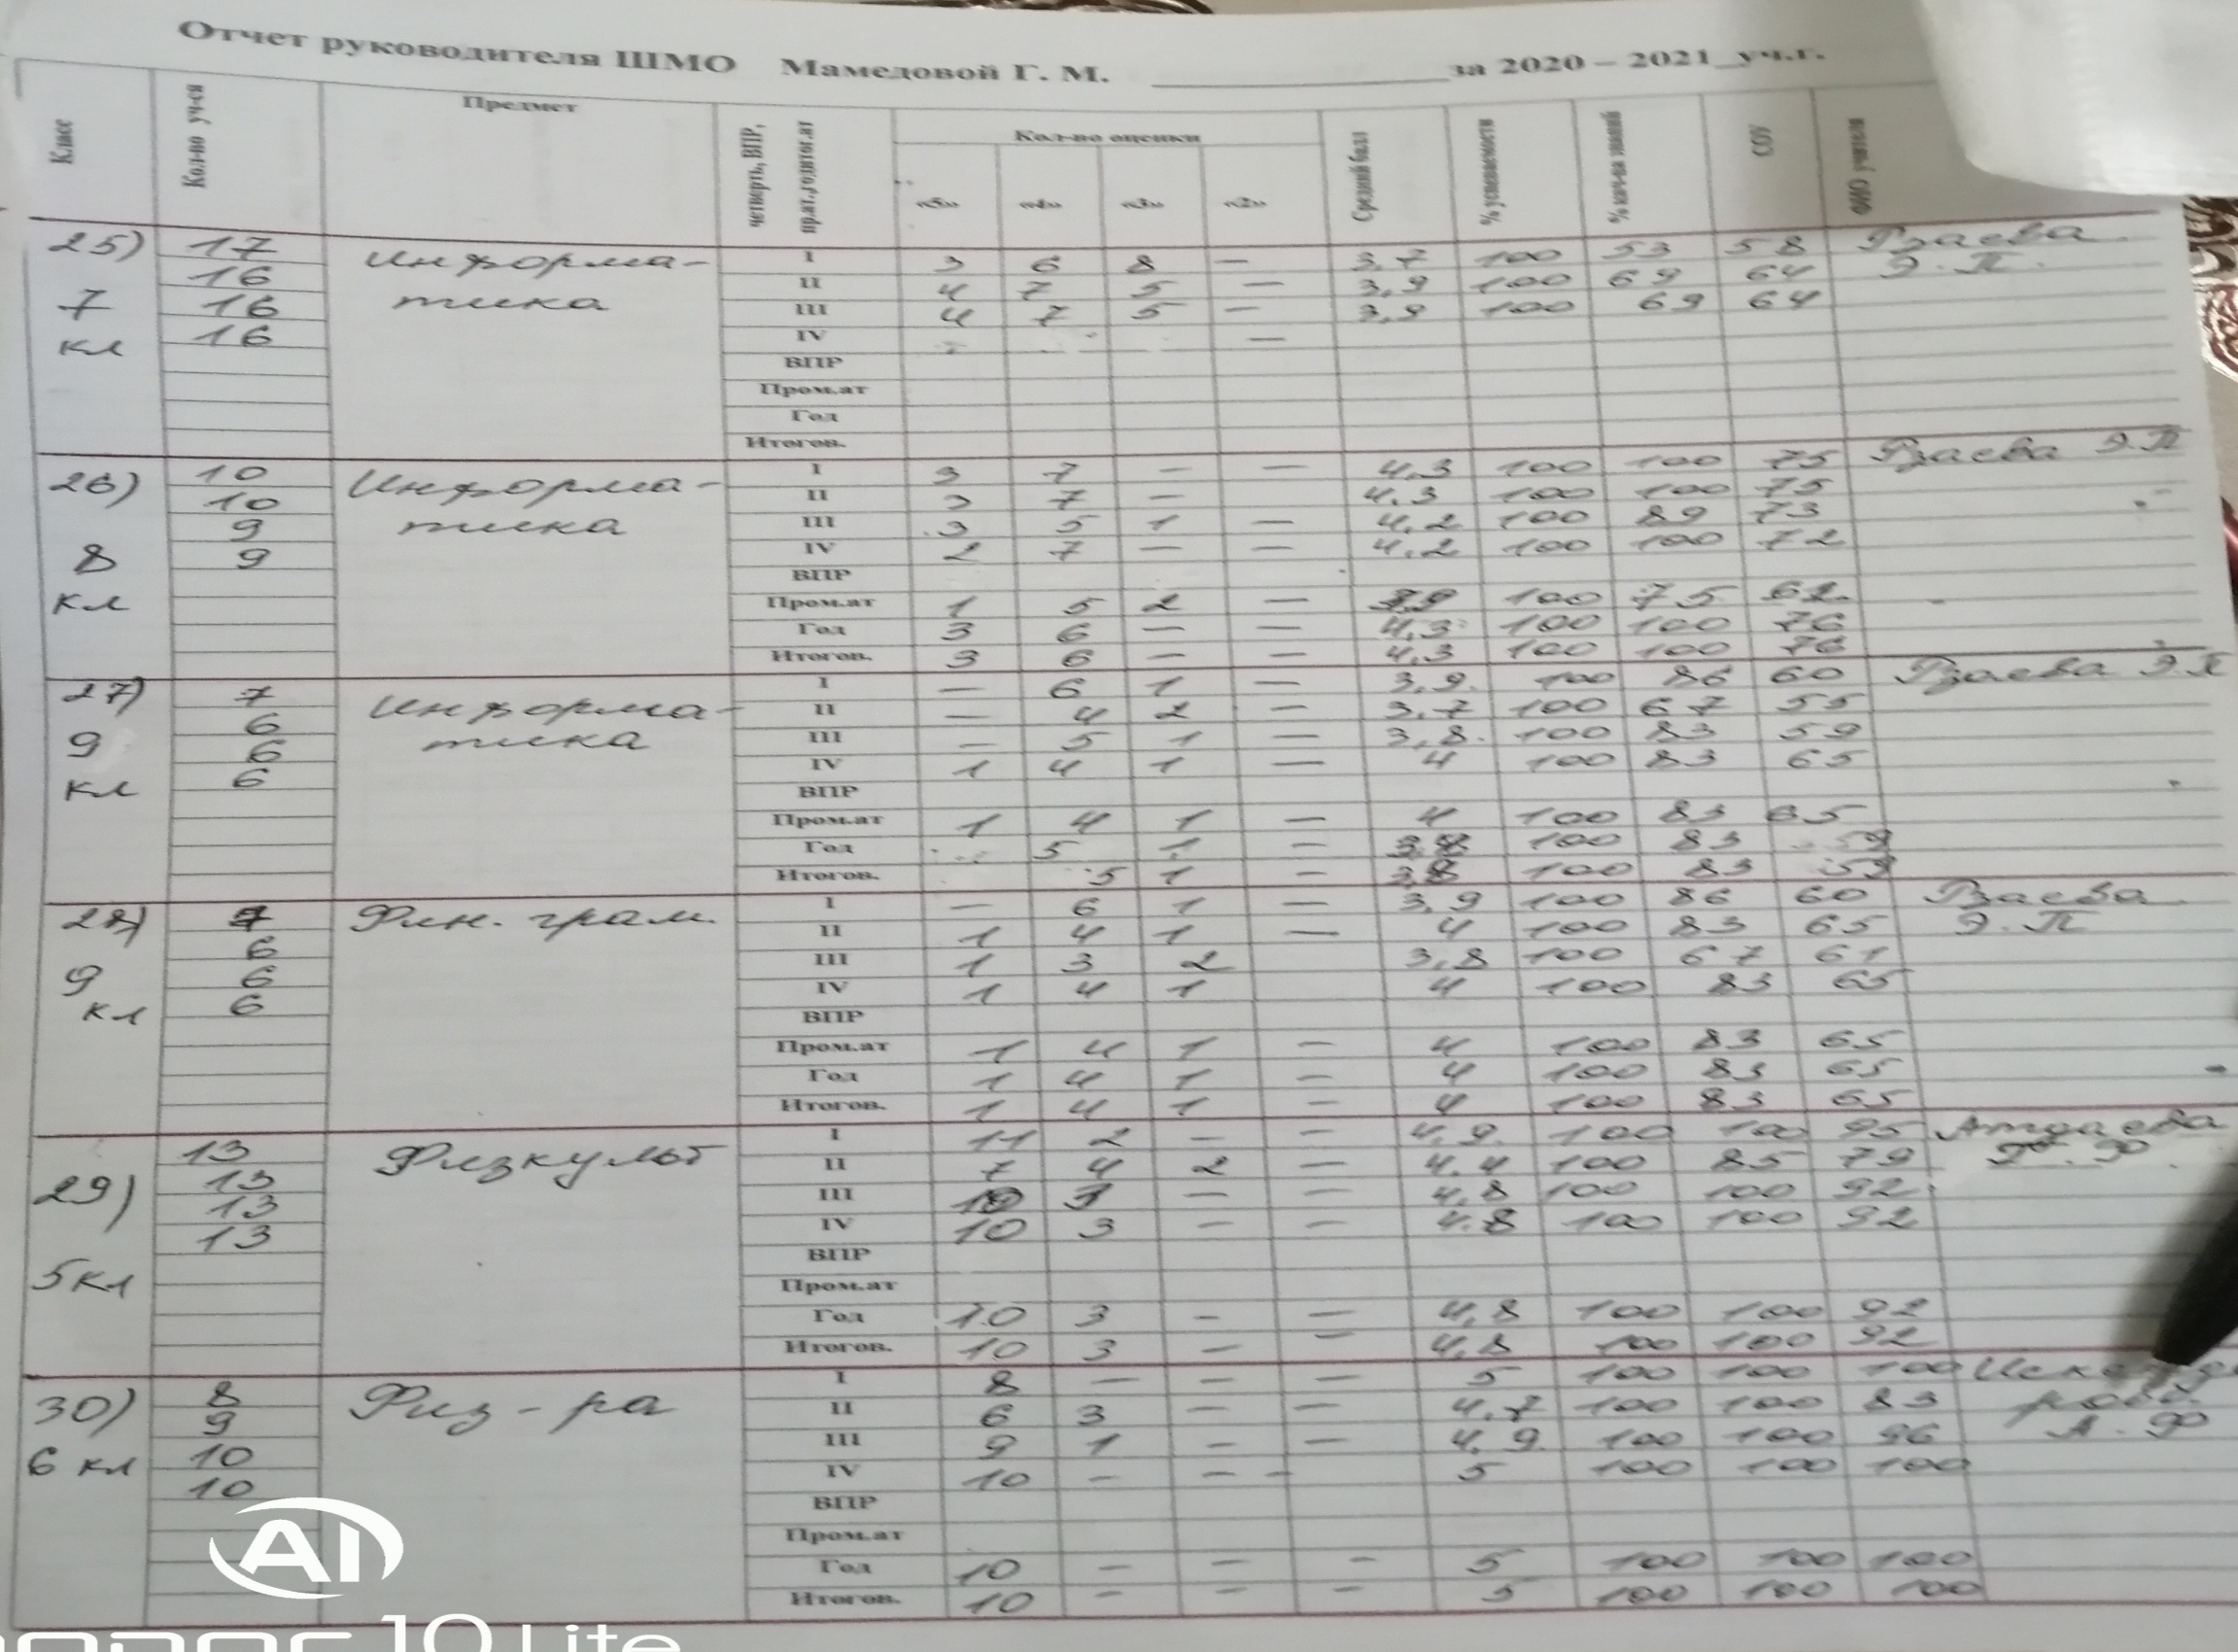 Отчет руководителя ШМО Мамедовой Г. М. за 2020 – 2021 уч.г.
Класс Кол-во уч-ся Предмет четверть, ВПР, пр.ат.,год,итог.ат Кол-во оценки Средний балл % успеваемости % кач-ва знаний СОУ ФИО учителя
«5» «4» «3» «2»
25) 17 Информа- I 3 6 8 – 3,7 100 53 58 Рзаева
16 II 4 7 5 – 3,9 100 69 64 Э. П.
7 16 тика III 4 7 5 – 3,9 100 69 64
кл 16 IV –
ВПР
Пром.ат
Год
Итогов.
26) 10 Информа- I 3 7 – – 4,3 100 100 75 Рзаева Э.П
10 II 3 7 – 4.3 100 100 75
9 тика III 3 5 1 – 4,2 100 89 73
8 9 IV 2 7 – – 4,2 100 100 72
ВПР
кл Пром.ат 1 5 2 – 3,9 100 75 62
Год 3 6 – – 4,3 100 100 76
Итогов. 3 6 – – 4,3 100 100 76
27) 7 Информа- I – 6 1 – 3,9 100 86 60 Рзаева Э.П
6 II – 4 2 – 3,7 100 67 55
9 6 тика III – 5 1 – 3,8 100 83 59
кл 6 IV 1 4 1 – 4 100 83 65
ВПР
Пром.ат 1 4 1 – 4 100 83 65
Год 5 1 – 3,8 100 83 59
Итогов. 5 1 – 3,8 100 83 59
28) 7 Фин. грам. I – 6 1 – 3,9 100 86 60 Рзаева
6 II 1 4 1 – 4 100 83 65 Э. П
9 6 III 1 3 2 3,8 100 67 61
кл 6 IV 1 4 1 4 100 83 65
ВПР
Пром.ат 1 4 1 – 4 100 83 65
Год 1 4 1 – 4 100 83 65
Итогов. 1 4 1 – 4 100 83 65
13 Физкульт I 11 2 – – 4,9 100 100 95
29) 13 II 7 4 2 – 4.4 100 85 79
13 III 10 3 – – 4,8 100 100 92
13 IV 10 3 – – 4.8 100 100 92
5кл ВПР
Пром.ат
Год 10 3 – – 4,8 100 100 92
Итогов. 10 3 – – 4,8 100 100 92
30) 8 Физ-ра I 8 – – – 5 100 100 100
9 II 6 3 – – 4,7 100 100 83
6 кл 10 III 9 1 – – 4,9 100 100 96 А. Ф
10 IV 10 – – – 5 100 100 100
ВПР
Пром.ат
Год 10 – – – 5 100 100 100
Итогов. 10 – – – 5 100 100 100
AI
10 Lite